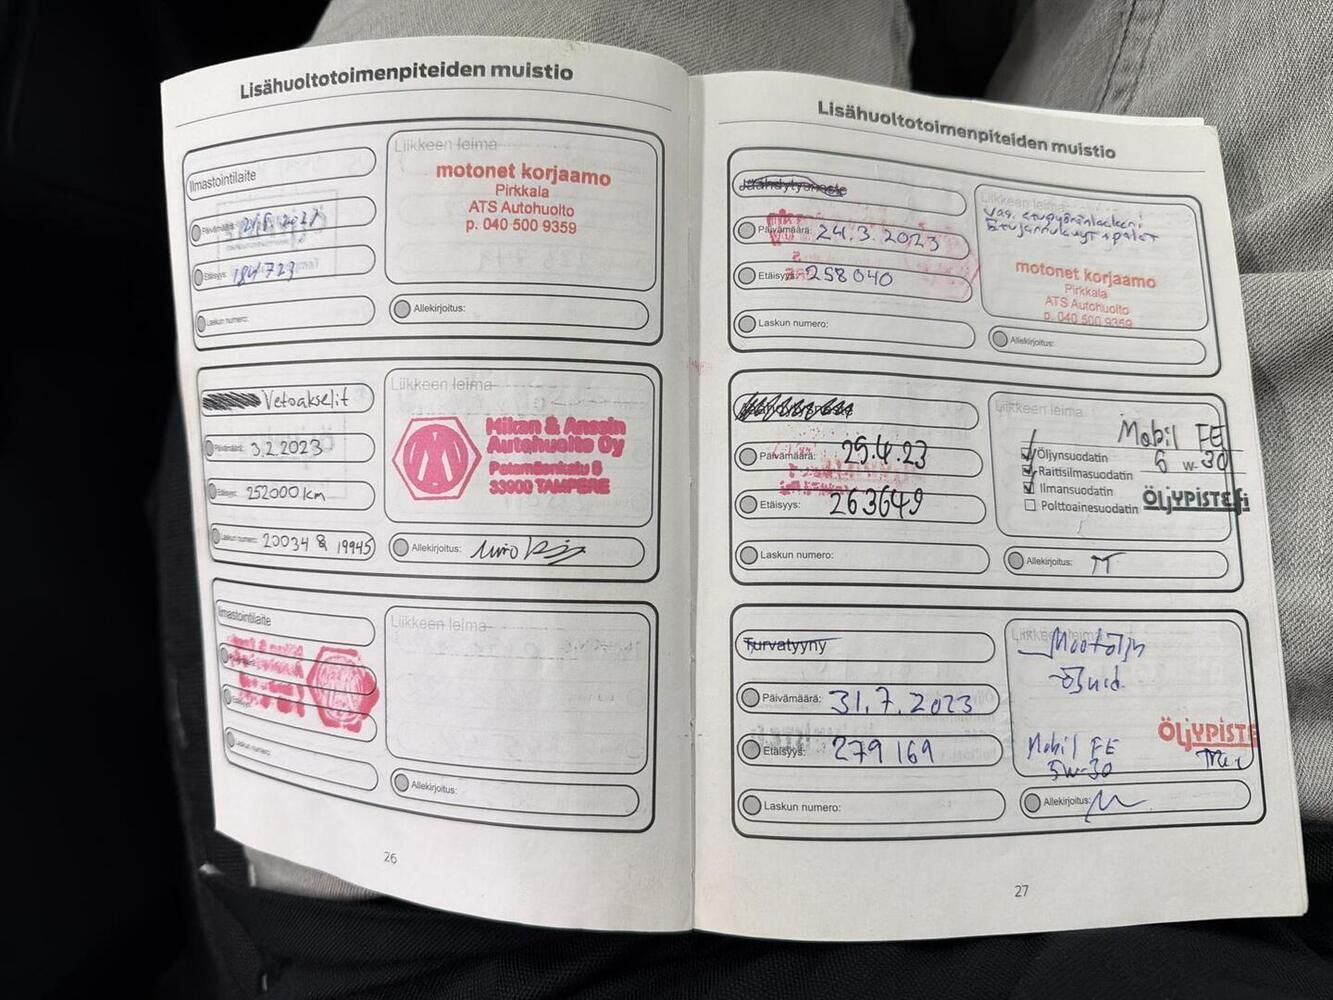 Lisähuoltotoimenpiteiden muistio
Ilmastointilaite
Päivämäärä:
Etäisyys: 184 723
Laskun numero:
Liikkeen leima
motonet korjaamo
Pirkkala
ATS Autohuolto
p. 040 500 9359
Allekirjoitus:
Vetoakselit
Päivämäärä: 3.2.2023
Etäisyys: 252000 km
Laskun numero: 20034 & 19945
Liikkeen leima
Mikan & Anssin
Autohuolto Oy
33900 TAMPERE
Allekirjoitus:
Ilmastointilaite
Laskun numero:
Liikkeen leima
Allekirjoitus:
26
Lisähuoltotoimenpiteiden muistio
Jäähdytysneste
Päivämäärä: 24.3.2023
Etäisyys: 258040
Laskun numero:
Liikkeen leima
Vas. etupyöränlaakeri
Etujarrulevyt + palat
motonet korjaamo
Pirkkala
ATS Autohuolto
p. 040 500 9359
Allekirjoitus:
Päivämäärä: 25.4.23
Etäisyys: 263649
Laskun numero:
Liikkeen leima
Mobil FE
5 w-30
Öljynsuodatin
Raitisilmasuodatin
Ilmansuodatin
Polttoainesuodatin
ÖLJYPISTE.fi
Allekirjoitus:
Turvatyyny
Päivämäärä: 31.7.2023
Etäisyys: 279 169
Laskun numero:
Liikkeen leima
Moottoriöljy
Öljysuod.
Mobil FE
5w-30
ÖLJYPISTE
Allekirjoitus:
27